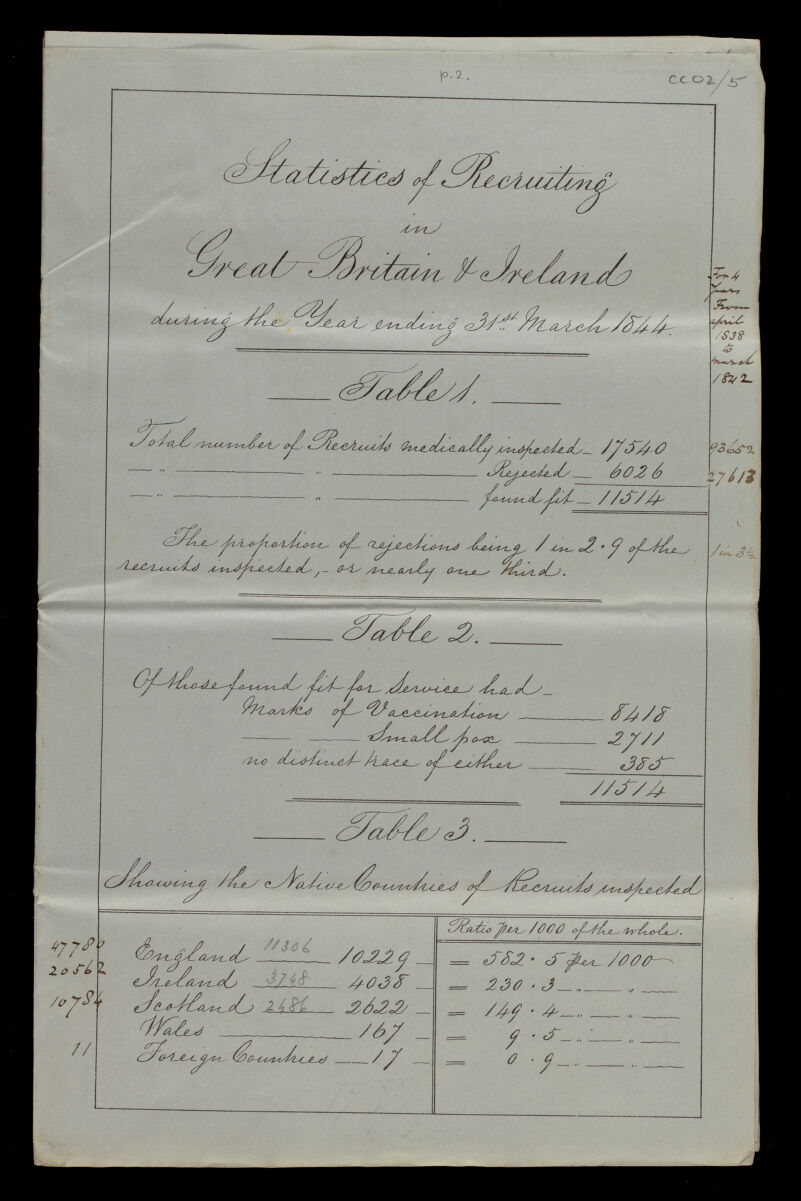 p.2.
CC02/5
Statistics of Recruiting
in
Great Britain & Ireland
during the Year ending 31st March 1844.
For 4
Years
From
april
1838
to
march
1842
Table 1.
Total number of Recruits medically inspected - 17540 93652
— " — " — Rejected - 6026 27613
— " — " — found fit - 11514
The proportion of rejections being 1 in 2·9 of the 1 in 3½
recruits inspected, - or nearly one third.
Table 2.
Of those found fit for Service had -
Marks of Vaccination — 8418
— — Small pox — 2711
no distinct trace of either — 385
11514
Table 3.
Showing the Native Countries of Recruits inspected
Ratio per 1000 of the whole.
47780 England 11306 10229 = 582·5 per 1000
20562 Ireland 3748 4038 = 230·3 — " — " —
10784 Scotland 2486 2622 = 149·4 — " — " —
Wales — 167 = 9·5 — " — " —
11 Foreign Countries — 17 = 0·9 — " — " —